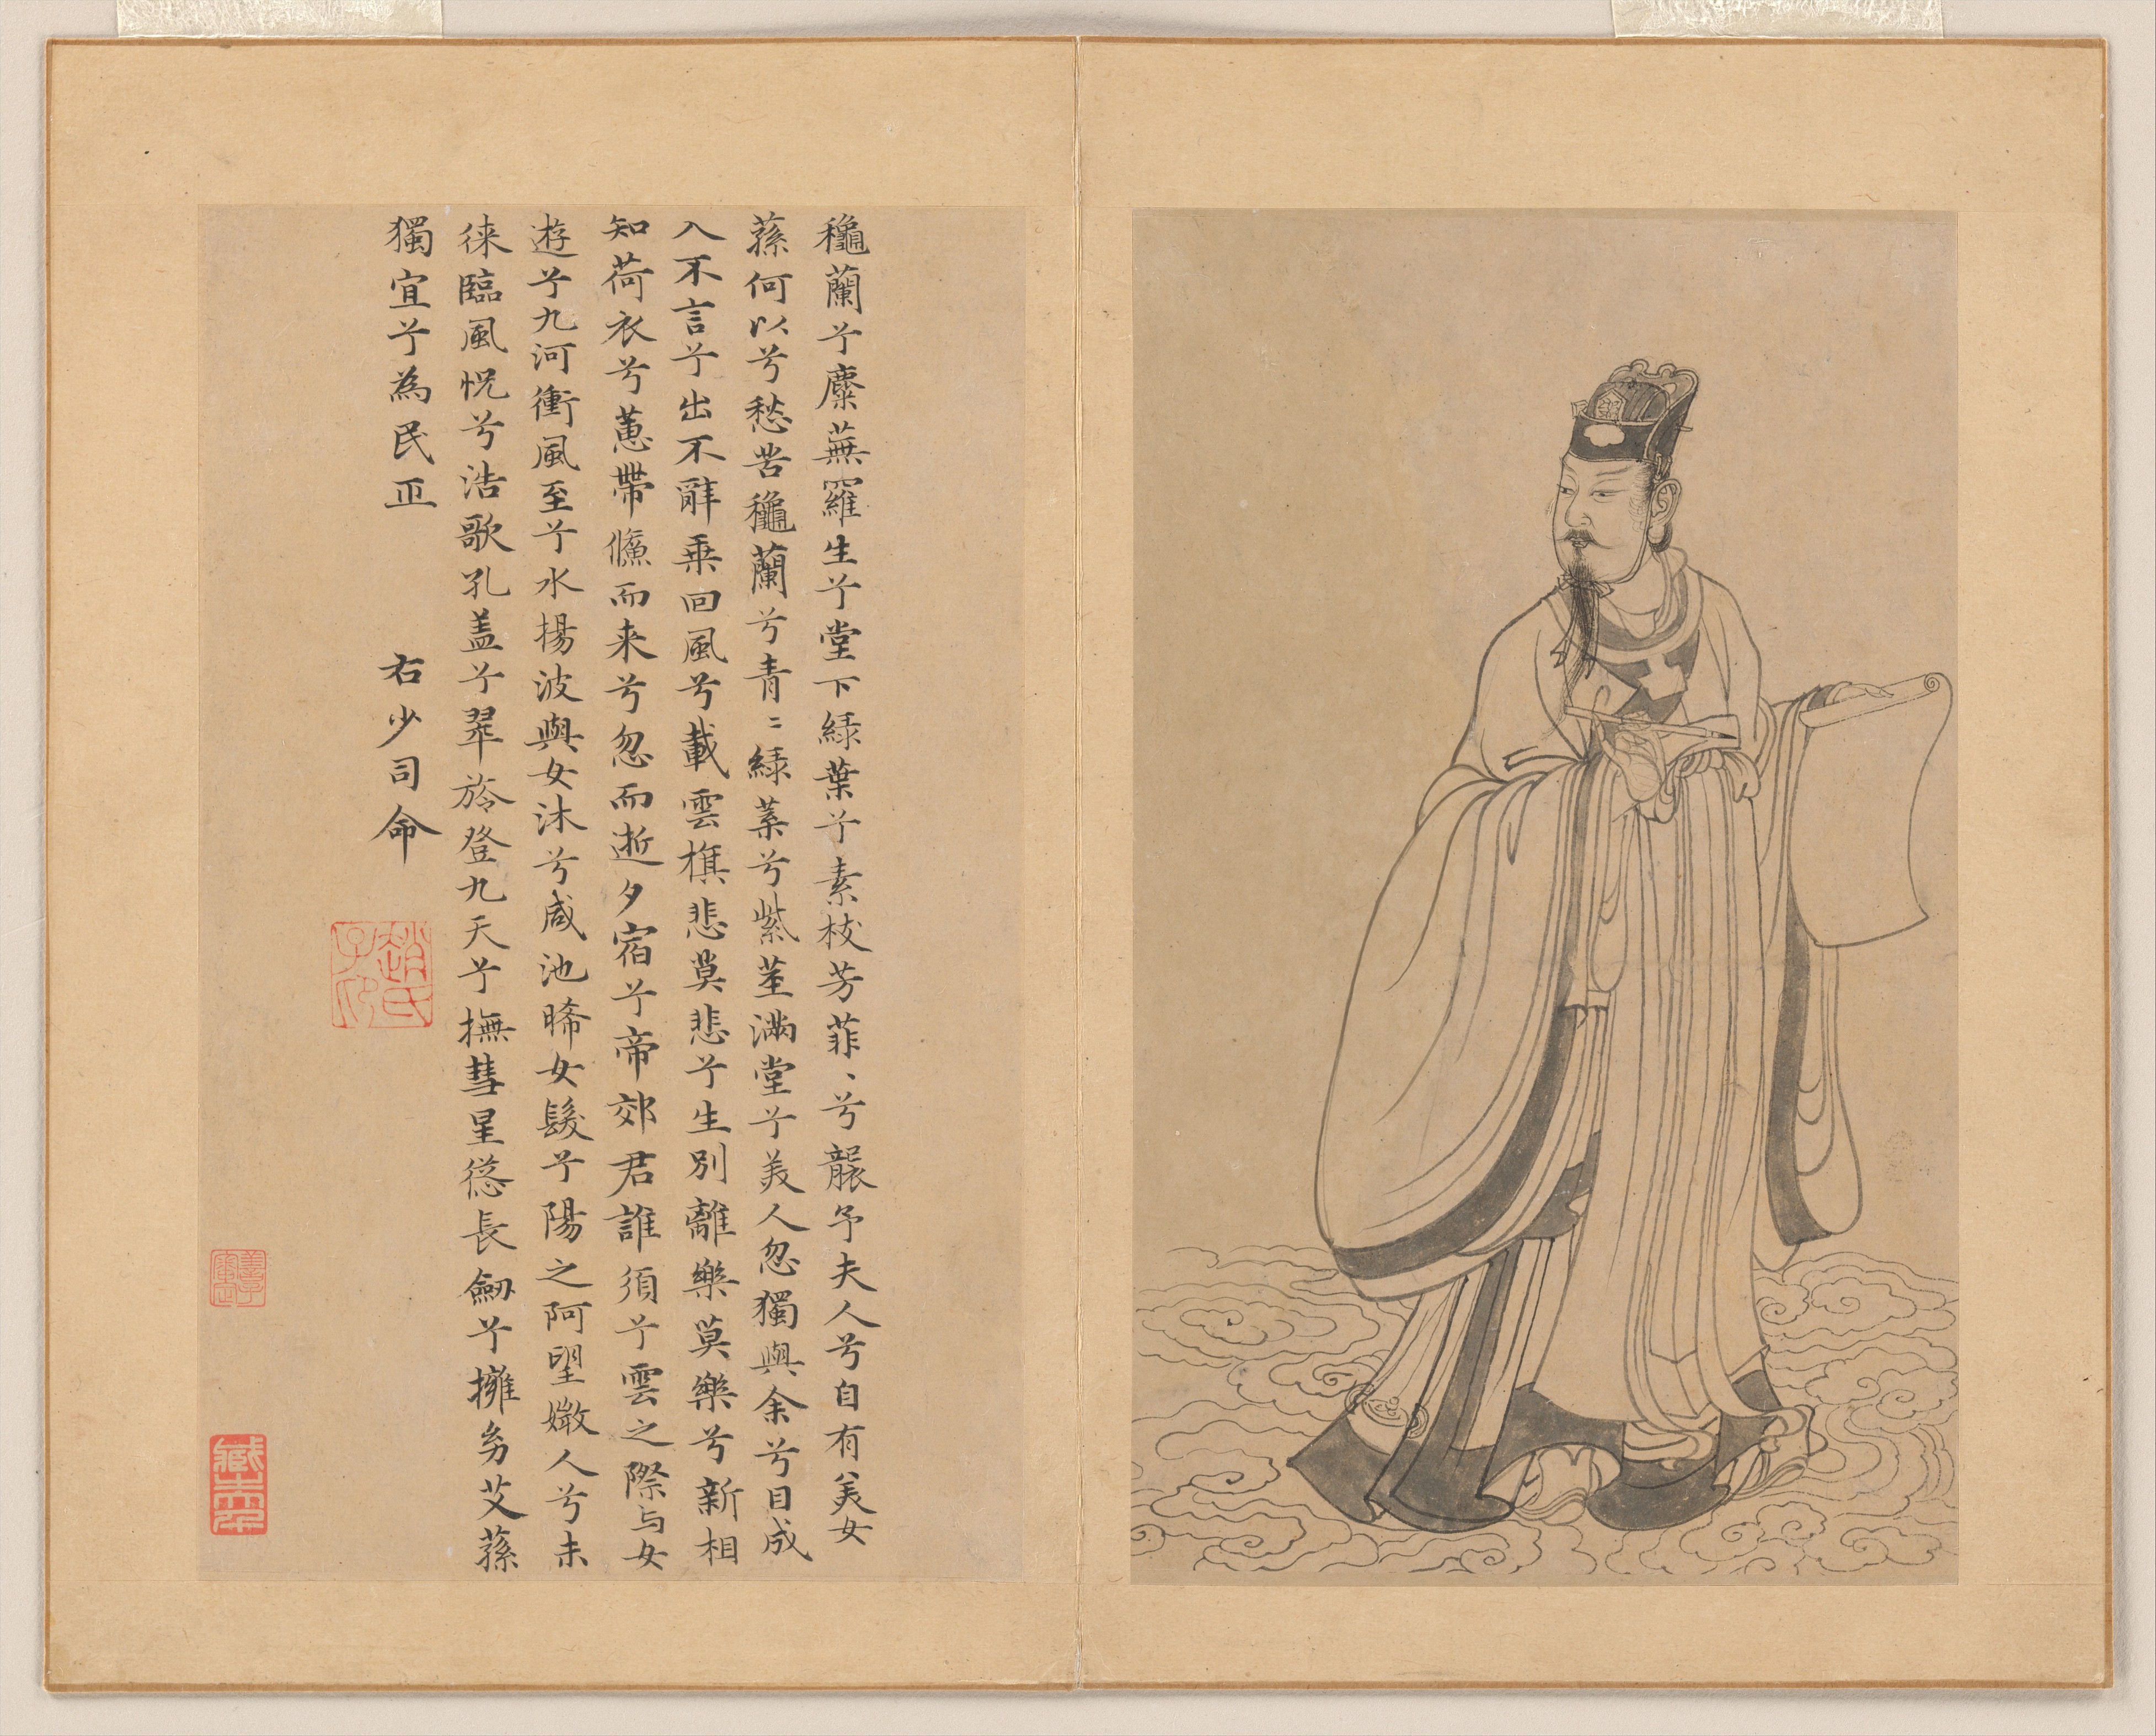 穐蘭兮麋蕪羅生兮堂下緑葉兮素枝芳菲、兮襲予夫人兮自有美女
蓀何以兮愁苦穐蘭兮青〻緑葉兮紫莖滿堂兮美人忽獨與余兮目成
入不言兮出不辭乗回風兮載雲旗悲莫悲兮生別離樂莫樂兮新相
知荷衣兮蕙帶儵而来兮忽而逝夕宿兮帝郊君誰須兮雲之際与女
遊兮九河衝風至兮水揚波與女沐兮咸池晞女髮兮陽之阿望媺人兮未
徠臨風怳兮浩歌孔盖兮翠旍登九天兮撫彗星慫長劒兮擁㓜艾蓀
獨宜兮為民正
右少司命
趙氏子昂